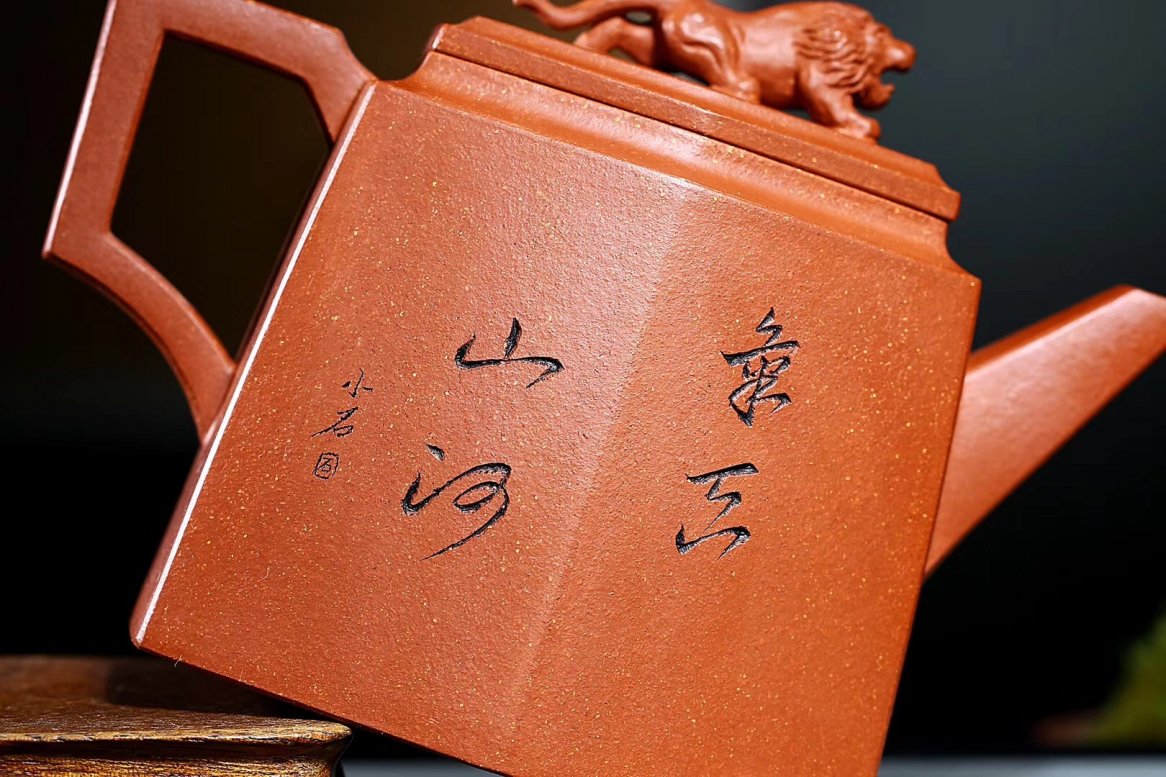 氣吞
山河
小石